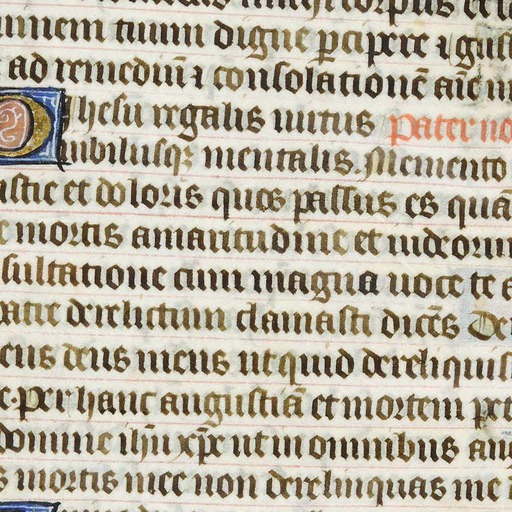 tuum digne p̲cipere ⁊ gust
ad remediū ⁊ consolationē aīe m
O Jhesu regalis uirtus Pater no
iubilusqꝫ mentalis. Memento
ustie et doloris quos passus es quā
mortis amaritudine et iudeorum
sultatione cum magna uoce te a
patre derelictum clamasti dicēs De
eus deus meus ut quid dereliquis
e. Per hanc angustiā et mortem pet
domine ihū xp̄e ut in omnibus ang
s mortis mee non derelinquas me